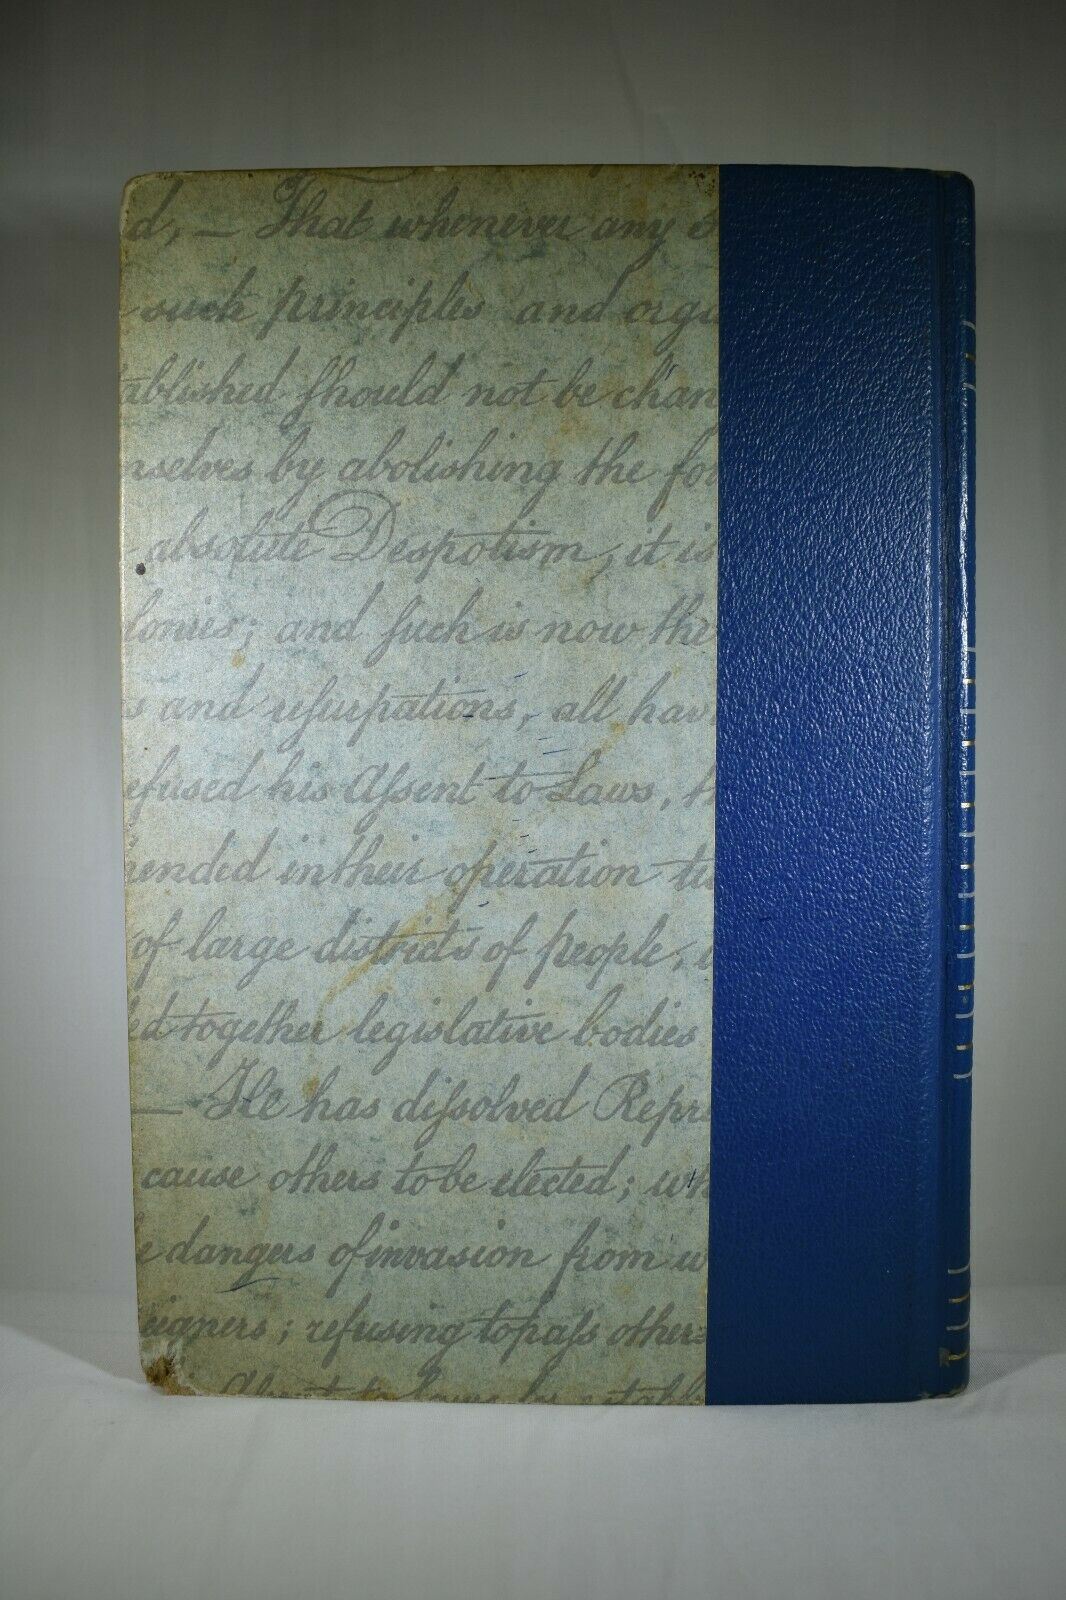 d, — That whenever any
such principles and orga
ablished should not be chan
nselves by abolishing the fo
absolute Despotism, it is
lonies; and such is now the
s and usurpations, all hav
efused his Assent to Laws, th
pended in their operation
of large districts of people,
ed together legislative bodies
— He has dissolved Repre
cause others to be elected; wh
e dangers of invasion from w
eigners; refusing to pass other